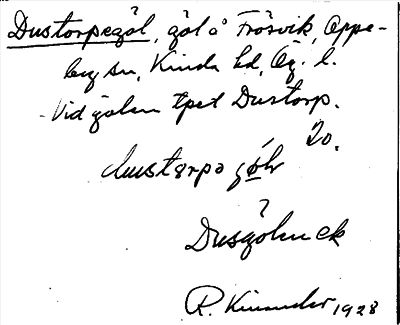 Dustorpegöl, göl å Frösvik, Oppe-
by sn, Kinda hd, Ög. l.
Vid gölen tpet Dustorp.
20.
göl
Dusgölen ck
R. Kinander 1928